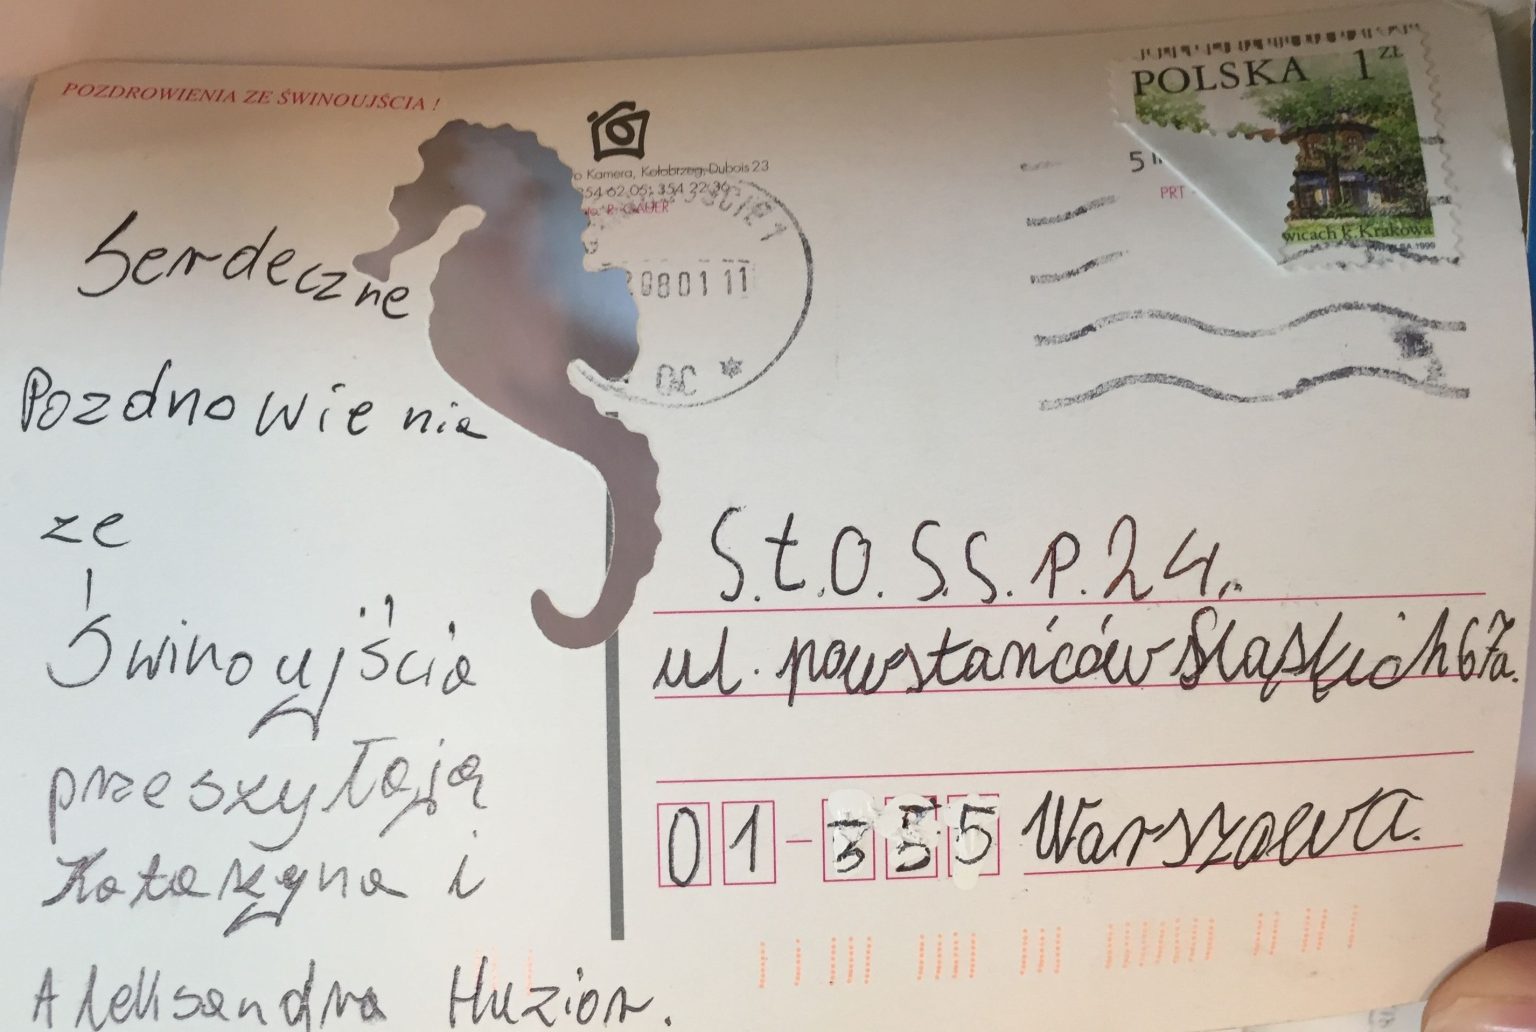 POZDROWIENIA ZE ŚWINOUJŚCIA !
o Kamera, Kołobrzeg, Dubois 23
354 62 05; 354 22 36
POLSKA 1 ZŁ
5
PRT
wicach k. Krakowa
0801 11
OC
Serdeczne
Pozdrowienia
ze
Świnoujścia
przeszyłają
Katarzyna i
Aleksandra Huzior.
S.t.O. S.S. P. 24.
ul. powstańców Śląskich 67a.
01-355 Warszawa.